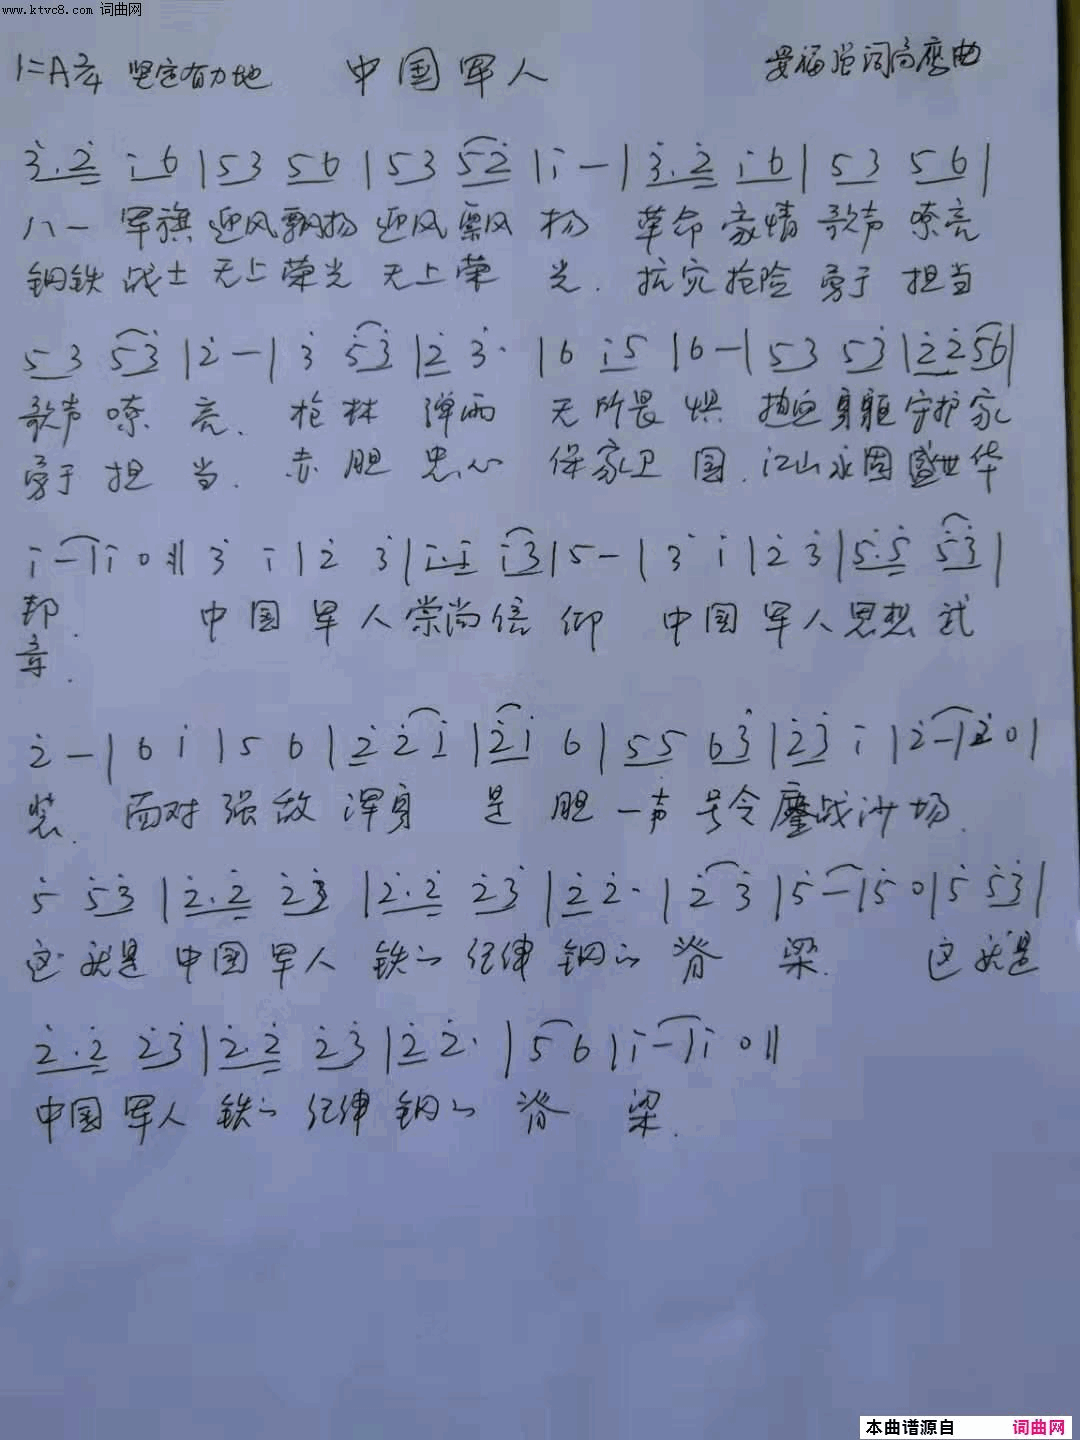 www.ktvc8.com 词曲网
1=A 2/4 坚定有力地 中国军人 晏福强词高鹰曲
3̇.2̇ i6 | 53 56 | 53 52̇ | i - | 3̇.2̇ i6 | 53 56 |
八一 军旗 迎风飘扬 迎风飘 扬 革命豪情 歌声 嘹亮
钢铁 战士 无上荣光 无上荣 光. 抗灾抢险 勇于 担当
53 53̇ | 2̇ - | 3̇ 53̇ | 2̇ 3̇· | 6 i5 | 6 - | 53 53̇ | 2̇2̇56 |
歌声 嘹 亮. 枪林 弹雨 无所畏 惧 热血身躯守护家
勇于 担 当. 赤胆 忠心 保家卫 国. 江山永固盛世华
i - | i 0 :|| 3̇ i | 2̇ 3̇ | i.i i3̇ | 5 - | 3̇ i | 2̇ 3̇ | 5̇.5̇ 5̇3̇ |
邦. 中国 军人崇尚信 仰 中国 军人思想 武
章.
2̇ - | 6 i | 5 6 | 2̇ 2̇i | 2̇i 6 | 55 63̇ | 2̇3̇ i | 2̇ - | 2̇ 0 |
装. 面对 强敌 浑身 是 胆 一声 号令鏖战沙场.
5̇ 5̇3̇ | 2̇.2̇ 2̇3̇ | 2̇.2̇ 2̇3̇ | 2̇ 2̇· | 2̇ 3̇ | 5̇ - | 5̇ 0 | 5̇ 5̇3̇ |
这 就是 中国 军人 铁的 纪律 钢的 脊 梁. 这就是
2̇.2̇ 2̇3̇ | 2̇.2̇ 2̇3̇ | 2̇ 2̇· | 5 6 | i - | i 0 ||
中国 军人 铁的 纪律 钢的 脊 梁.
本曲谱源自 词曲网